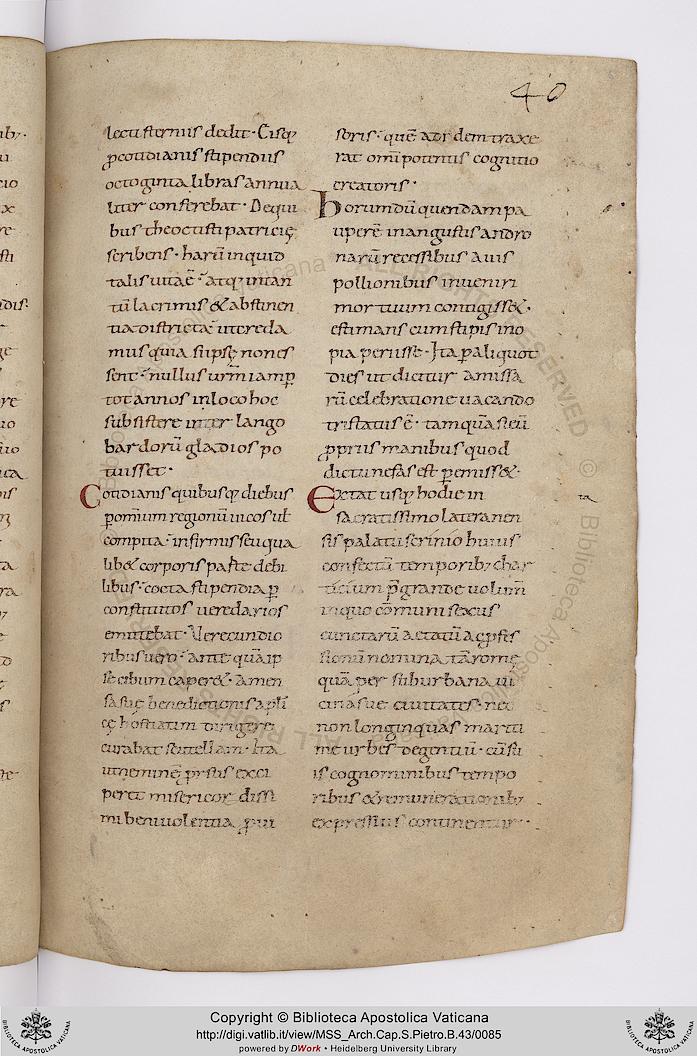 40
lectisterniis dedit · Eisq;
p̱cotidianis stipendiis
octoginta libras annua
liter conferebat · Dequi
bus theoctisti patricię
scribens · harū inquid
talis uita ē · atq; intan
tū lacrimis & abstinen
tia districta · ut creda
mus quia si ipsę non es
sent · nullus urm̄ iam p̱
tot annos in loco hoc
subsistere inter lango
bardorū gladios po
tuisset ·
Cotidianis quibusq; diebus
p̱ omnium regionū uicos ul
compita · infirmis seu qua
lib& corporis parte debi
libus · cocta stipendia p̱
constitutos ueredarios
emittebat · Verecundio
ribus uero · ante quā ip
se cibum caper& · amen
sa suę benedictionis apl̄i
cę hostiatim dirigere
curabat scutellam · Ita
ut neminē prsus exci
peret misericordissi
mi beniuolentia · p̱ui
soris · quē ad id em traxe
rat omīpotentis cognitio
creatoris ·
horum dū quendam pa
uperē in angustis andro
narū recessibus a uis
pollionibus inueniri
mortuum contigiss& ·
estimans eum stipis ino
pia perisse · Ita p̱ aliquot
dies ut dicitur a missa
rū celebratione uacando
tristatus ē · tamquā si eū
p̱priis manibus quod
dictu nefas est peremiss& ·
Extat usq; hodie in
sacratissimo lateranen
sis palatii scrinio huius
confectū temporib; char
ticium p̱grande uolum̄
in quo cōmuni sexus
cunctarū aetatū ac p̱fes
sionū nomina tā romę
quā per suburbana ui
cinasue ciuitates · nec
non longinquas mariti
me urbes degentiū · cū su
is cognominibus tempo
ribus & remunerationib;
expressius continentur ·
ta
Copyright © Biblioteca Apostolica Vaticana
http://digi.vatlib.it/view/MSS_Arch.Cap.S.Pietro.B.43/0085
powered by DWork • Heidelberg University Library